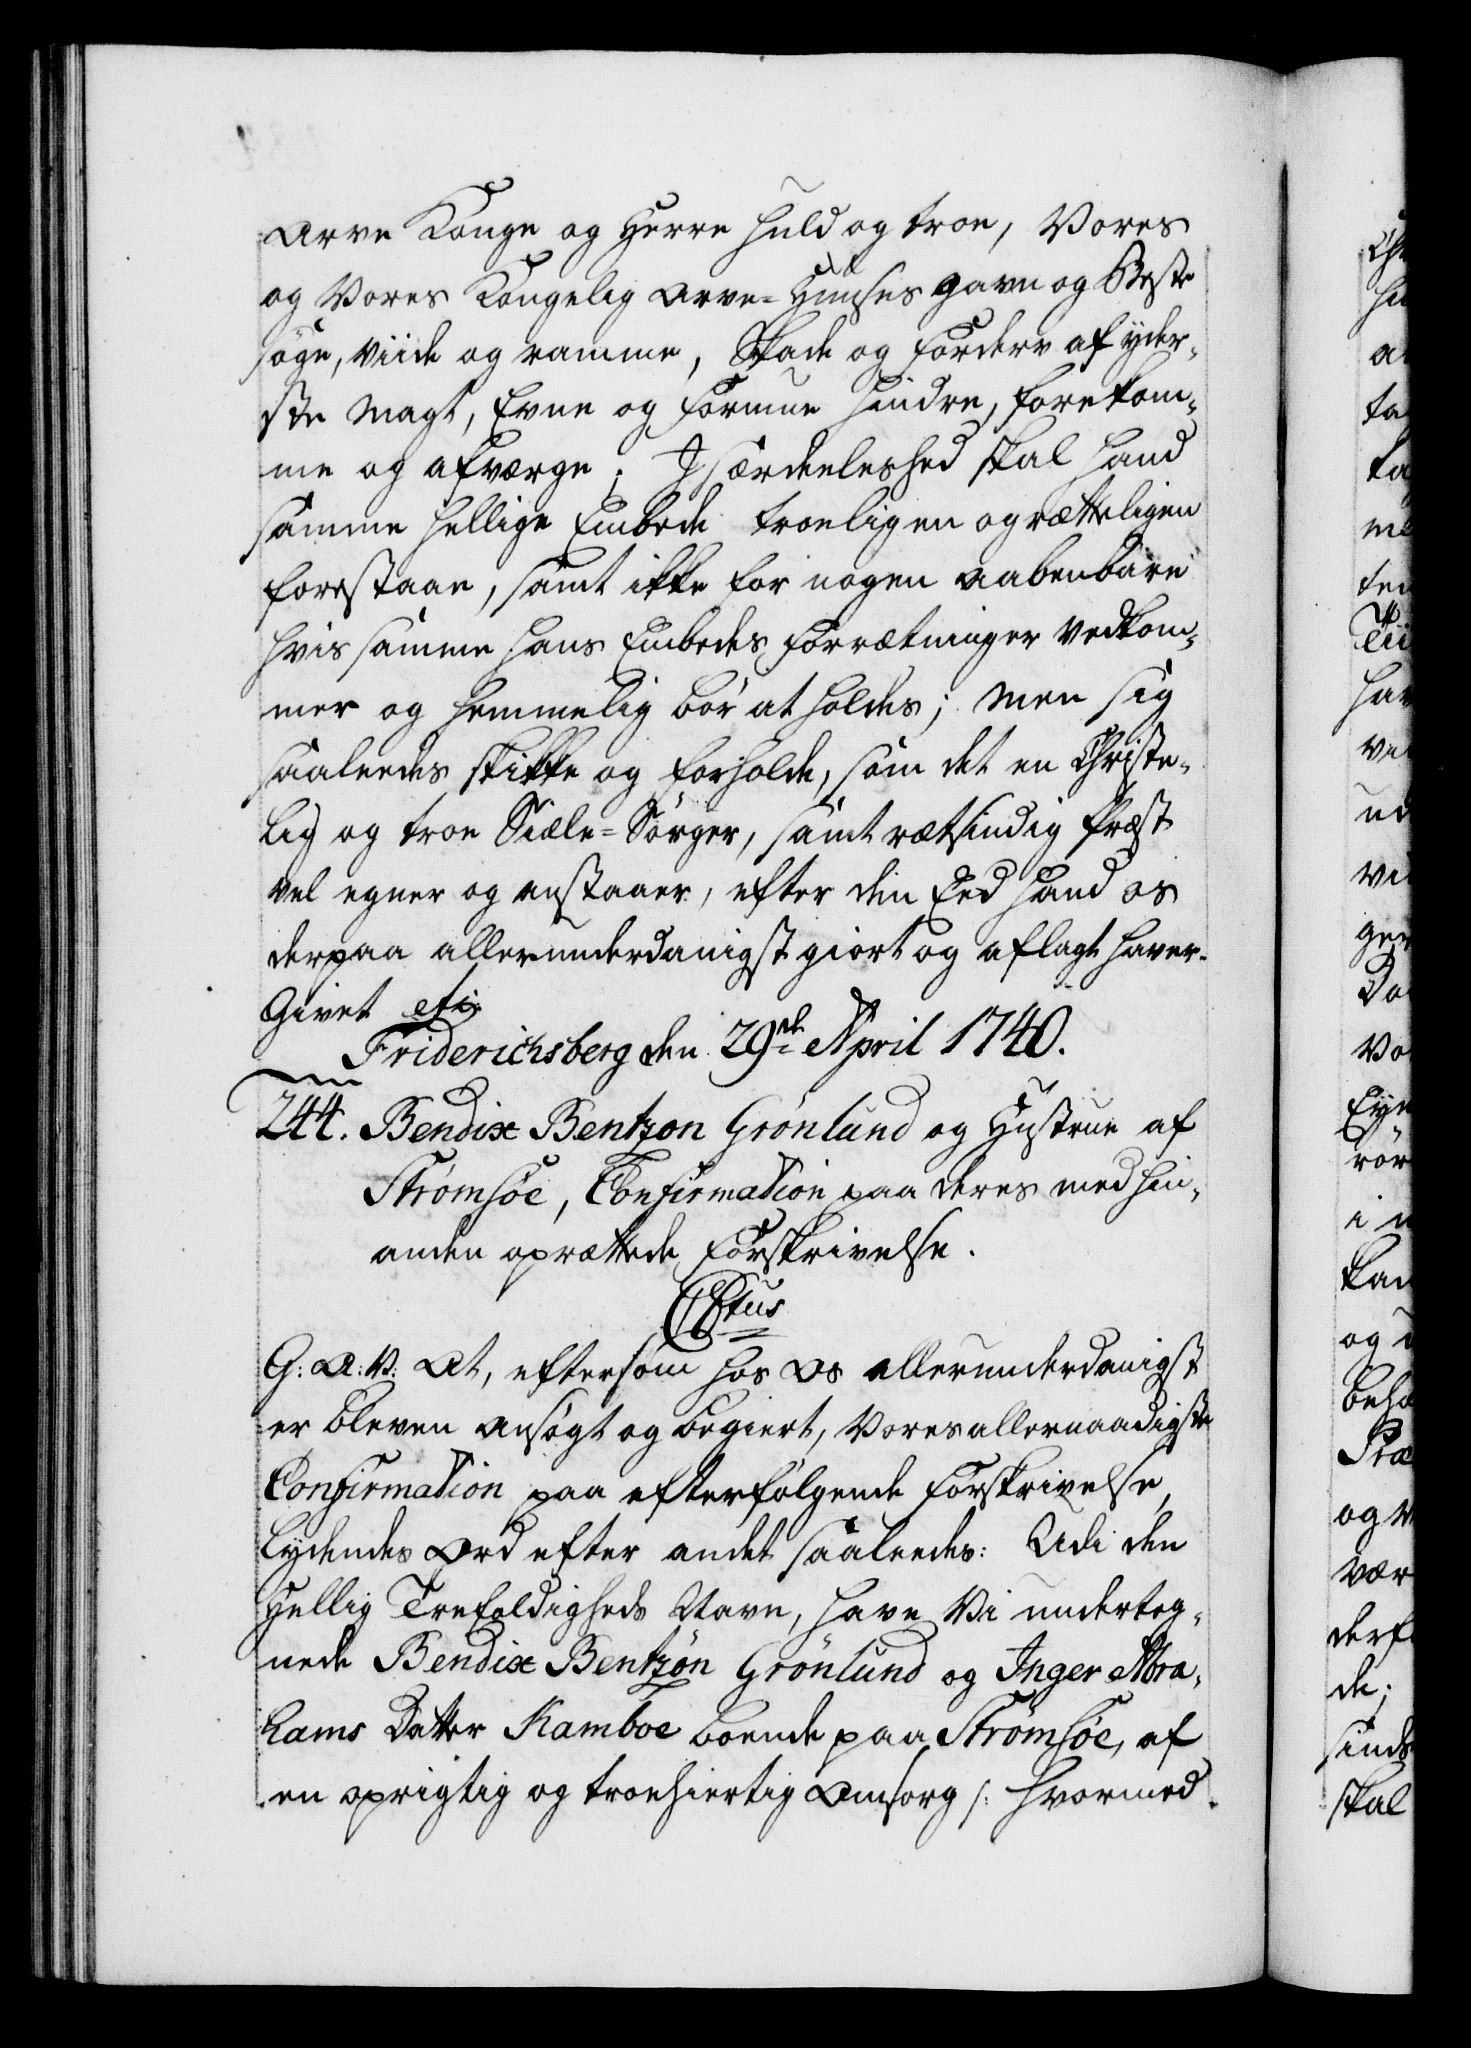 Arve Konge og Herre huld og troe, Vores
og Vores Kongelig Arve-Huuses gavn og Beste
søge, viide og ramme, Skade og Forderv af yder-
ste Magt, Evne og Formue hindre, forekom-
me og afværge; J særdeeleshed skal hand
samme hellige Embede troeligen og rætteligen
forestaae, samt ikke for nogen aabenbare
hvis samme hans Embedes Forrætninger vedkom-
mer og hemmelig bør at holdes; men sig
saaleedes skikke og forholde, som det en Christe-
lig og troe Siæle-Sørger, samt rætsindig Præst
vel egner og anstaaer, efter din Eed hand os
derpaa allerunderdanigst giort og aflagt haver.
Givet etc
Friderichsberg den 29de April 1740.
244. Bendix Bentzon Grönlund og Hustrue af
Strømsøe, Confirmation paa deres med hin-
anden oprættede Forskrivelse.
C6tus
G: A: V: At, eftersom hos Os allerunderdanigst
er bleven ansøgt og begiert, Vores allernaadigste
Confirmation paa efterfølgende Forskrivelse,
lydendes Ord efter andet saaleedes: Udi den
Hellig Trefoldigheds Navn, have Vi underteg-
nede Bendix Bentzön Grönlund og Inger Abra-
hams Datter Kamboe boende paa Strømsøe, af
en oprigtig og troehiertig Omsorg /: hvormed